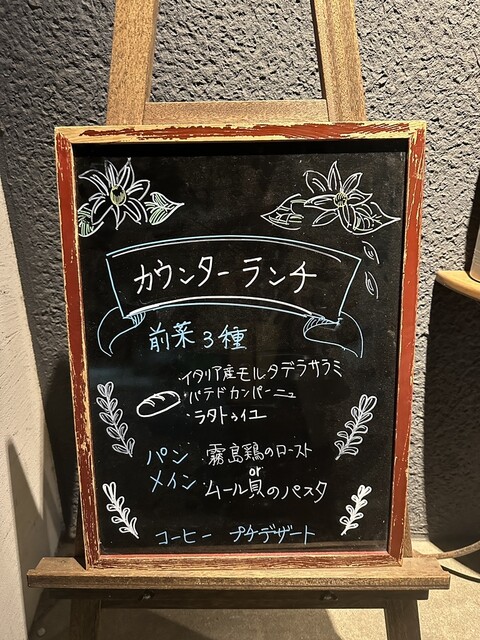 カウンターランチ
前菜3種
・イタリア産モルタデラサラミ
・パテドカンパーニュ
・ラタトゥイユ
パン
・霧島鶏のロースト
or
メイン
・ムール貝のパスタ
コーヒー プチデザート